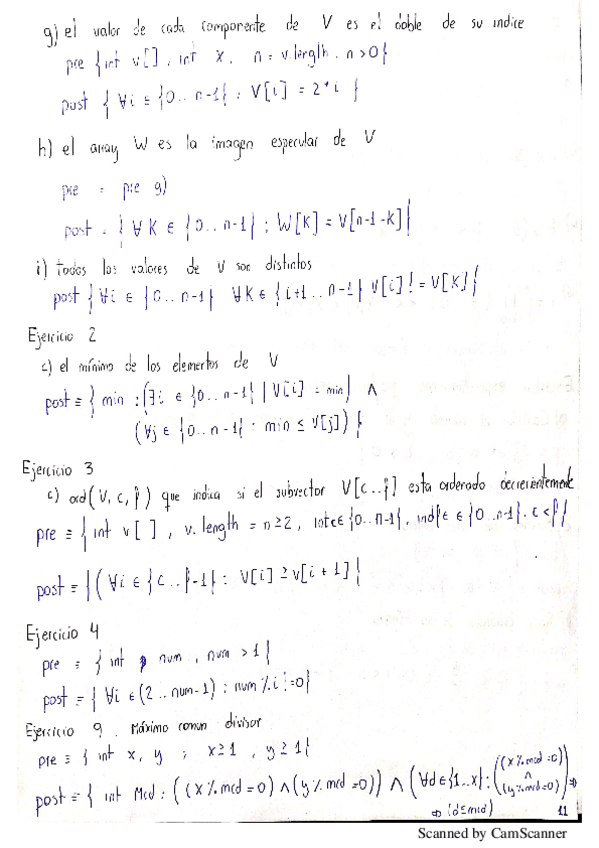 g) el valor de cada componente de V es el doble de su indice
pre {int v[], int x, n = v.length. n>0}
post { ∀i ∈ {0..n-1} : V[i] = 2*i }
h) el array W es la imagen especular de V
pre = pre g)
post = { ∀K ∈ {0..n-1} : W[K] = V[n-1-K]}
i) todos los valores de V son distintos
post { ∀i ∈ {0..n-1} ∀K ∈ {i+1..n-1} V[i] != V[K] }
Ejercicio 2
c) el mínimo de los elementos de V
post ≡ { min : (∃i ∈ {0..n-1} | V[i] = min) ∧
(∀j ∈ {0..n-1} : min ≤ V[j]) }
Ejercicio 3
c) ord(V, c, f) que indica si el subvector V[c..f] esta ordenado decrecientemente
pre ≡ { int v[ ], v.length = n≥2, int c∈{0..n-1}, int f ∈ {0..n-1}. c<f }
post ≡ { (∀i ∈ {c..f-1} : V[i] ≥ v[i+1] }
Ejercicio 4
pre ≡ { int num, num > 1 }
post ≡ { ∀i ∈ (2..num-1) : num % i != 0}
Ejercicio 9. Máximo comun divisor
pre ≡ { int x, y ; x≥1, y≥1}
post ≡ { int Mcd : ((x % mcd = 0) ∧ (y % mcd = 0)) ∧ (∀d ∈ {1..x} : ((x % mcd = 0) ∧ (y % mcd = 0)) ⇒
⇒ (d ≤ mcd)
11
Scanned by CamScanner